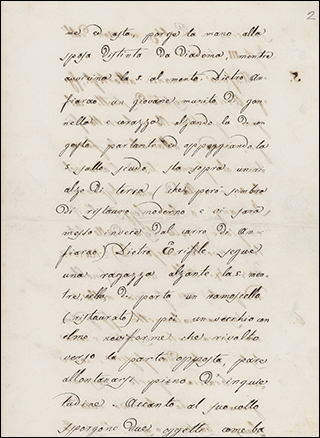 2
me ed asta, porge la mano alla
sposa distinta da diadema, mentre
avvicina la s. al mento. Dietro An-
fiarao un giovane munito di gon-
nello e corazza alzando la d. in
gesto parlante ed appoggiando la
s. sullo scudo, sta sopra un ri-
alzo di terra (che però sembra
di ristauro moderno e vi sarà
messo invece del carro di An-
fiarao.) Dietro Erifile segue
una ragazza alzante la s. men-
tre nella d. porta un ramoscello
(ristaurato), poi un vecchio con
elmo noviforme che rivolto
verso la parte opposta pare
allontanarsi pieno d'inquie
tudine. Accanto al suo collo
sporgono due oggetti come ba